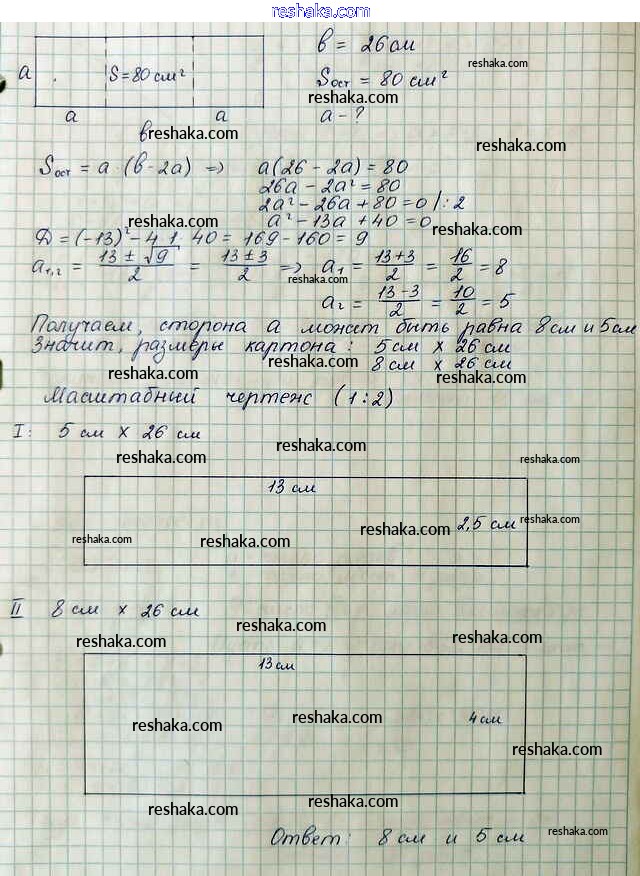 reshaka.com
a S = 80 см²
a a
в
в = 26 см
reshaka.com
Sост = 80 см²
reshaka.com
a - ?
reshaka.com
reshaka.com
Sост = a · (в - 2a) => a(26 - 2a) = 80
26a - 2a² = 80
2a² - 26a + 80 = 0 /: 2
reshaka.com
a² - 13a + 40 = 0
reshaka.com
Д = (-13)² - 4 · 1 · 40 = 169 - 160 = 9
a₁,₂ = (13 ± √9)/2 = (13 ± 3)/2 => a₁ = (13 + 3)/2 = 16/2 = 8
reshaka.com
a₂ = (13 - 3)/2 = 10/2 = 5
reshaka.com
Получаем, сторона a может быть равна 8 см и 5 см
reshaka.com
Значит, размеры картона: 5 см x 26 см
reshaka.com
8 см x 26 см
reshaka.com
Масштабный чертеж (1:2)
reshaka.com
I: 5 см x 26 см
reshaka.com
reshaka.com
reshaka.com
13 см
reshaka.com
2,5 см
reshaka.com
reshaka.com
reshaka.com
reshaka.com
II 8 см x 26 см
reshaka.com
reshaka.com
reshaka.com
13 см
reshaka.com
4 см
reshaka.com
reshaka.com
reshaka.com
reshaka.com
Ответ: 8 см и 5 см
reshaka.com